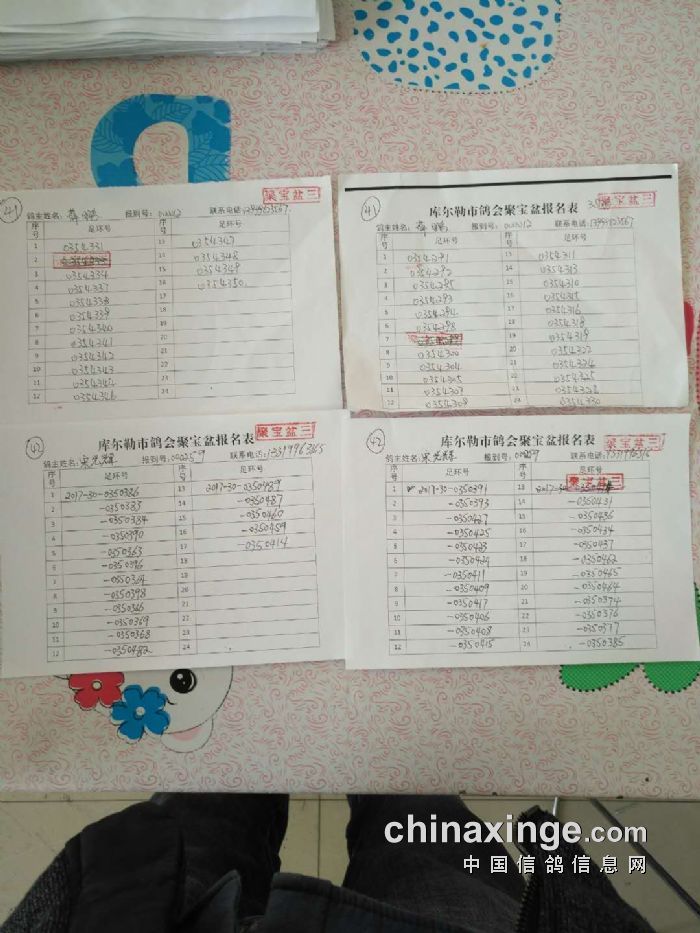 41
聚宝盆三
鸽主姓名:
报到号:
联系电话:
序号
足环号
1 0354331 13 0354347
2 14 0354348
3 0354334 15 0354349
4 0354337 16 0354350
5 0354338 17
6 0354339 18
7 0354340 19
8 0354341 20
9 0354342 21
10 0354343 22
11 23
12 0354346 24
41
聚宝盆三
库尔勒市鸽会聚宝盆报名表
鸽主姓名:
报到号:
联系电话:
序号
足环号
序号
足环号
1 0354291 13 0354311
2 0354292 14 0354313
3 0354285 15 0354310
4 0354293 16 0354315
5 0354294 17 0354316
6 0354298 18 0354318
7 19 0354319
8 0354300 20 0354322
9 0354304 21 0354324
10 0354305 22 0354325
11 0354303 23
12 0354308 24 0354330
42
库尔勒市鸽会聚宝盆报名表
聚宝盆三
鸽主姓名:
报到号: 000259
联系电话:
序号
足环号
序号
足环号
1 2017-30-0350386 13 2017-30-0350489
2 -0350383 14 -0350487
3 -0350384 15 -0350460
4 -0350390 16 -0350459
5 -0350363 17 -0350414
6 -0350396 18
7 -0350364 19
8 -0350398 20
9 -0350366 21
10 -0350369 22
11 -0350368 23
12 -0350482 24
42
库尔勒市鸽会聚宝盆报名表
聚宝盆三
鸽主姓名:
报到号: 000259
联系电话:
序号
足环号
序号
足环号
聚宝盆三
1 2017-30-0350391 13
2 -0350393 14 -0350431
3 -0350427 15 -0350436
4 -0350425 16 -0350434
5 -0350423 17 -0350437
6 -0350424 18 -0350462
7 -0350411 19 -0350465
8 -0350409 20 -0350464
9 -0350417 21 -0350374
10 -0350406 22 -0350376
11 -0350408 23 -0350377
12 -0350415 24 -0350385
chinaxinge.com
中国信鸽信息网